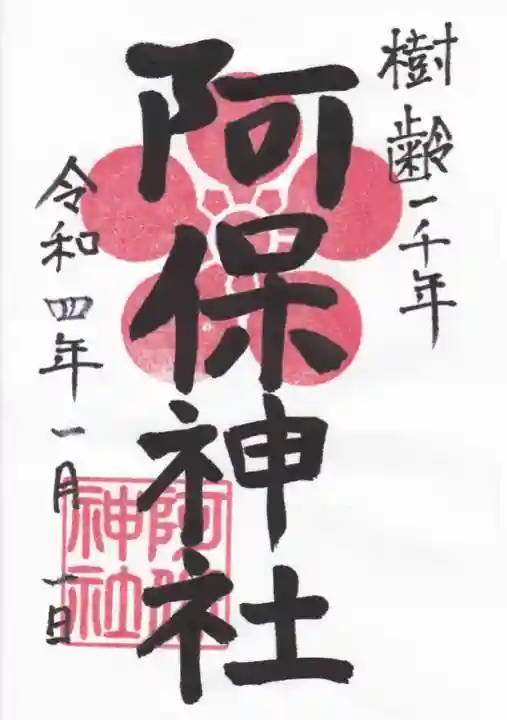 樹齢一千年
阿保神社
令和四年一月一日
阿保
神社